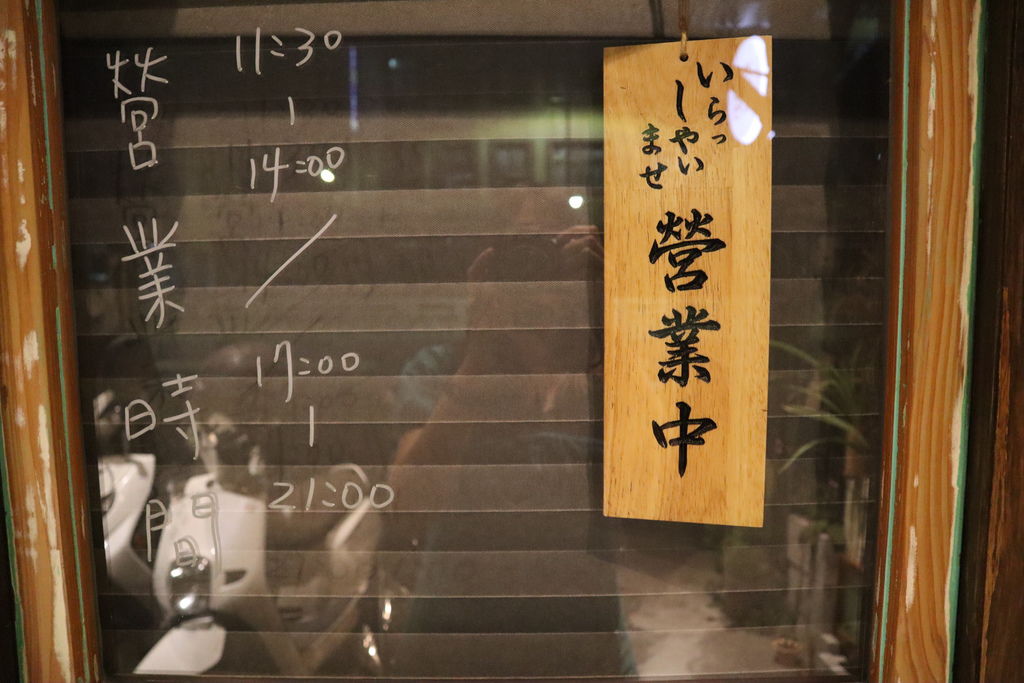 營業時間
11:30
|
14:00
/
17:00
|
21:00
いらっ
しゃい
ませ
營業中